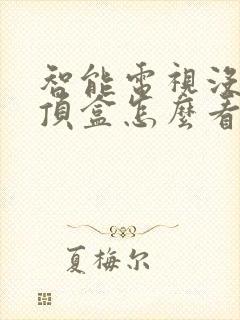 智能電視沒
頂盒怎麼看
夏梅尔